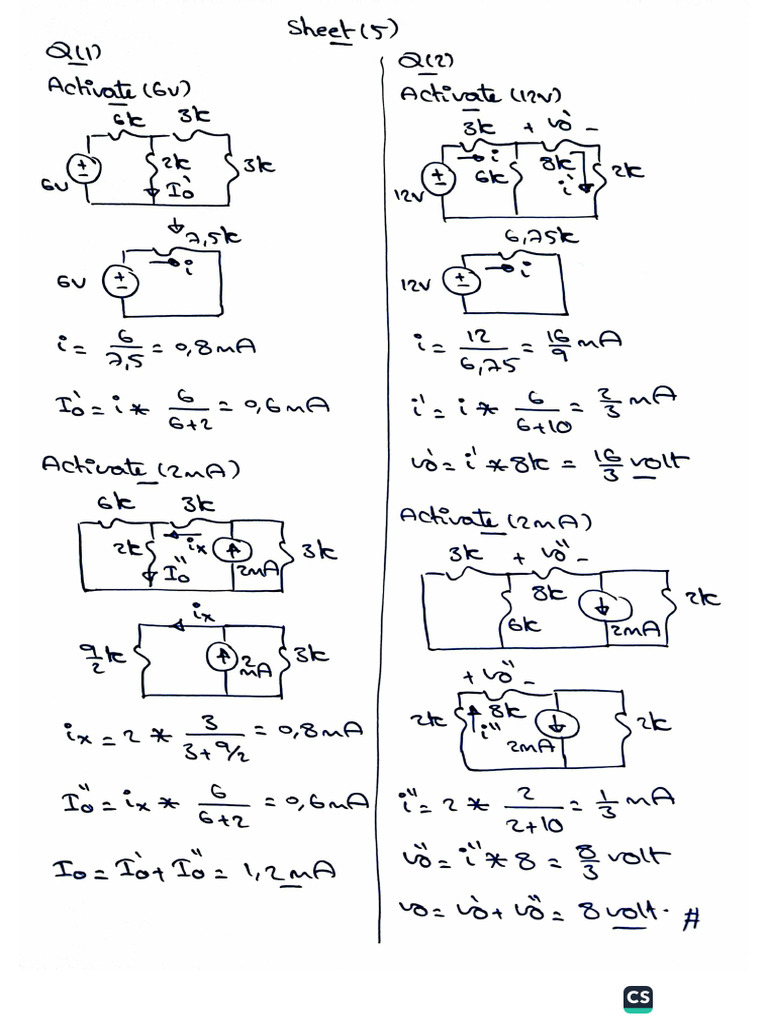 Sheet(5)
Q(1)
Activate (6v)
6k 3k
6v 2k 3k
Io'
7,5k
6v i
i = 6/7,5 = 0,8mA
Io' = i * 6/(6+2) = 0,6mA
Activate (2mA)
6k 3k
2k ix 3k
Io'' 2mA
ix
9/2k 2mA 3k
ix = 2 * 3/(3+9/2) = 0,8mA
Io'' = ix * 6/(6+2) = 0,6mA
Io = Io' + Io'' = 1,2mA
Q(2)
Activate (12v)
3k + vo' -
i 8k 2k
12v 6k i'
6,75k
12v i
i = 12/6,75 = 16/9 mA
i' = i * 6/(6+10) = 2/3 mA
vo' = i' * 8k = 16/3 volt
Activate (2mA)
3k + vo'' -
8k 2k
6k 2mA
+ vo'' -
2k 8k 2k
i'' 2mA
i'' = 2 * 2/(2+10) = 1/3 mA
vo'' = i'' * 8 = 8/3 volt
vo = vo' + vo'' = 8 volt. #
CS